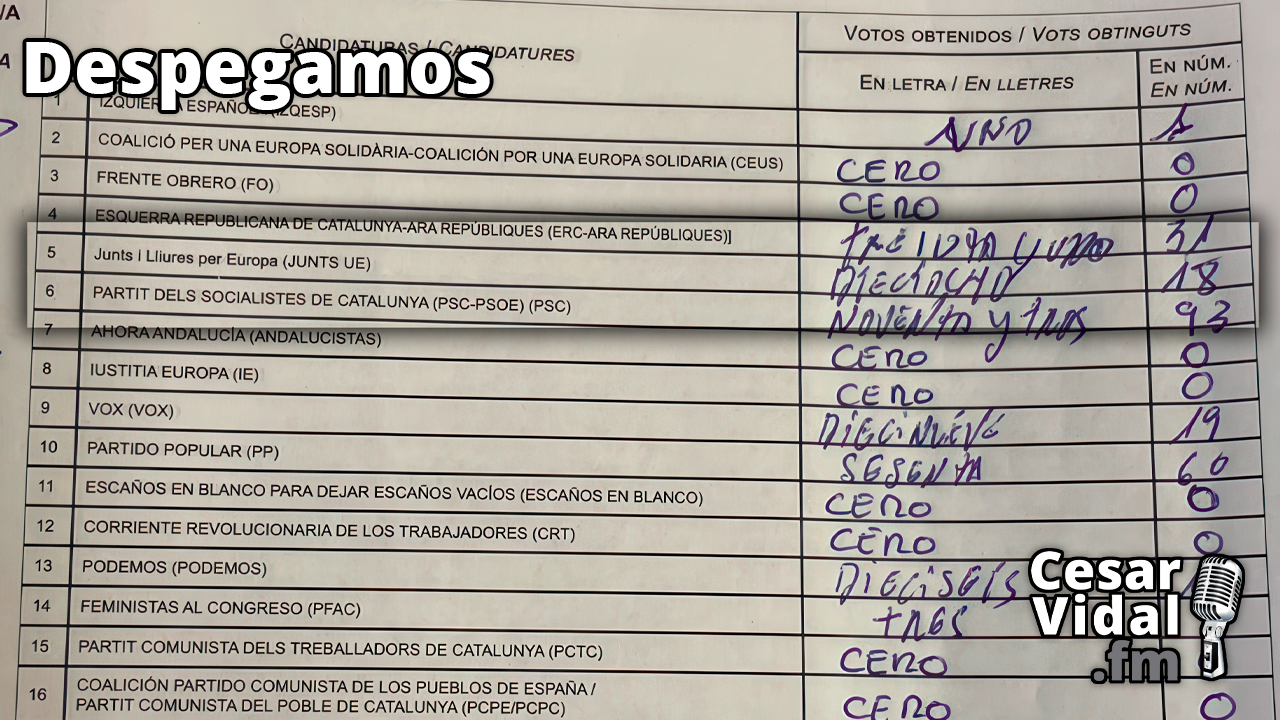 /A
A
Despegamos
CANDIDATURAS / CANDIDATURES
VOTOS OBTENIDOS / VOTS OBTINGUTS
EN LETRA / EN LLETRES
EN NÚM.
EN NÚM.
1 IZQUIERDA ESPAÑOLA (IZQESP) UNO 1
2 COALICIÓ PER UNA EUROPA SOLIDÀRIA-COALICIÓN POR UNA EUROPA SOLIDARIA (CEUS) CERO 0
3 FRENTE OBRERO (FO) CERO 0
4 ESQUERRA REPUBLICANA DE CATALUNYA-ARA REPÚBLIQUES (ERC-ARA REPÚBLIQUES)] TREINTA Y UNO 31
5 Junts i Lliures per Europa (JUNTS UE) DIECIOCHO 18
6 PARTIT DELS SOCIALISTES DE CATALUNYA (PSC-PSOE) (PSC) NOVENTA y TRES 93
7 AHORA ANDALUCÍA (ANDALUCISTAS) CERO 0
8 IUSTITIA EUROPA (IE) CERO 0
9 VOX (VOX) DIECINUEVE 19
10 PARTIDO POPULAR (PP) SESENTA 60
11 ESCAÑOS EN BLANCO PARA DEJAR ESCAÑOS VACÍOS (ESCAÑOS EN BLANCO) CERO 0
12 CORRIENTE REVOLUCIONARIA DE LOS TRABAJADORES (CRT) CERO 0
13 PODEMOS (PODEMOS) DIECISEIS
14 FEMINISTAS AL CONGRESO (PFAC) TRES
15 PARTIT COMUNISTA DELS TREBALLADORS DE CATALUNYA (PCTC) CERO
16 COALICIÓN PARTIDO COMUNISTA DE LOS PUEBLOS DE ESPAÑA /
PARTIT COMUNISTA DEL POBLE DE CATALUNYA (PCPE/PCPC) CERO 0
Cesar
Vidal
.fm